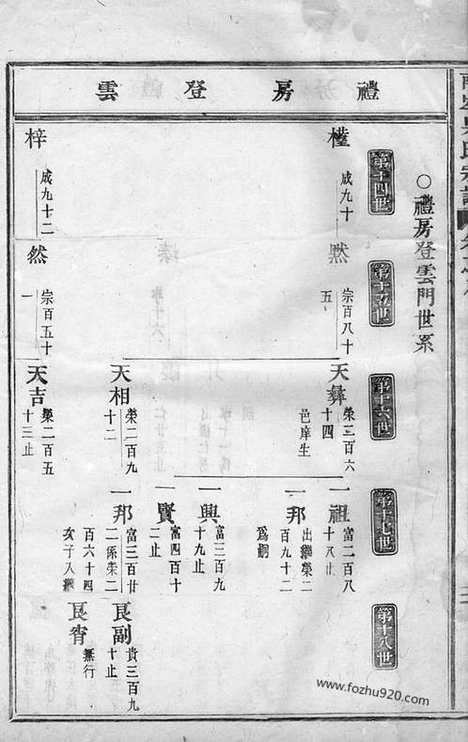 禮房登雲
○禮房登雲門世系
第十四世
第十五世
第十六世
第十七世
第十八世
權 成九十
然 宗百八十
五
天彝 榮三百六
十四
邑庠生
一祖 富二百八
十八止
一邦 出繼榮二
百九十二
為嗣
一興 富三百九
十九止
一賢 富四百十
二止
天相 榮二百九
十二
一邦 富三百廿
二係榮二
百六十四
次子入繼
良副 貴三百九
十止
良宵 無行
梓 成九十二
然 宗百五十
一
天吉 榮二百五
十三止
www.fozhu920.com